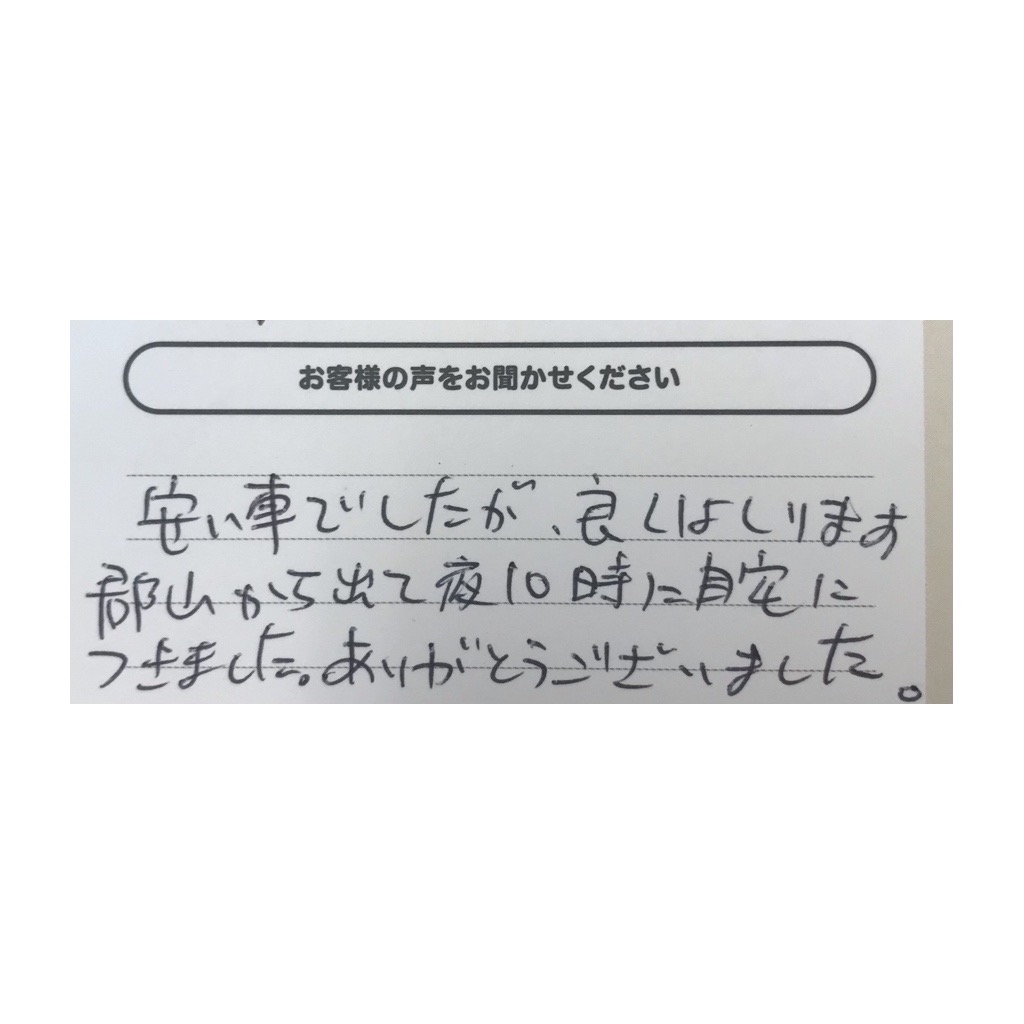 お客様の声をお聞かせください
安い車でしたが、良くはしります
郡山から出て夜10時に自宅に
つきました。ありがとうございました。